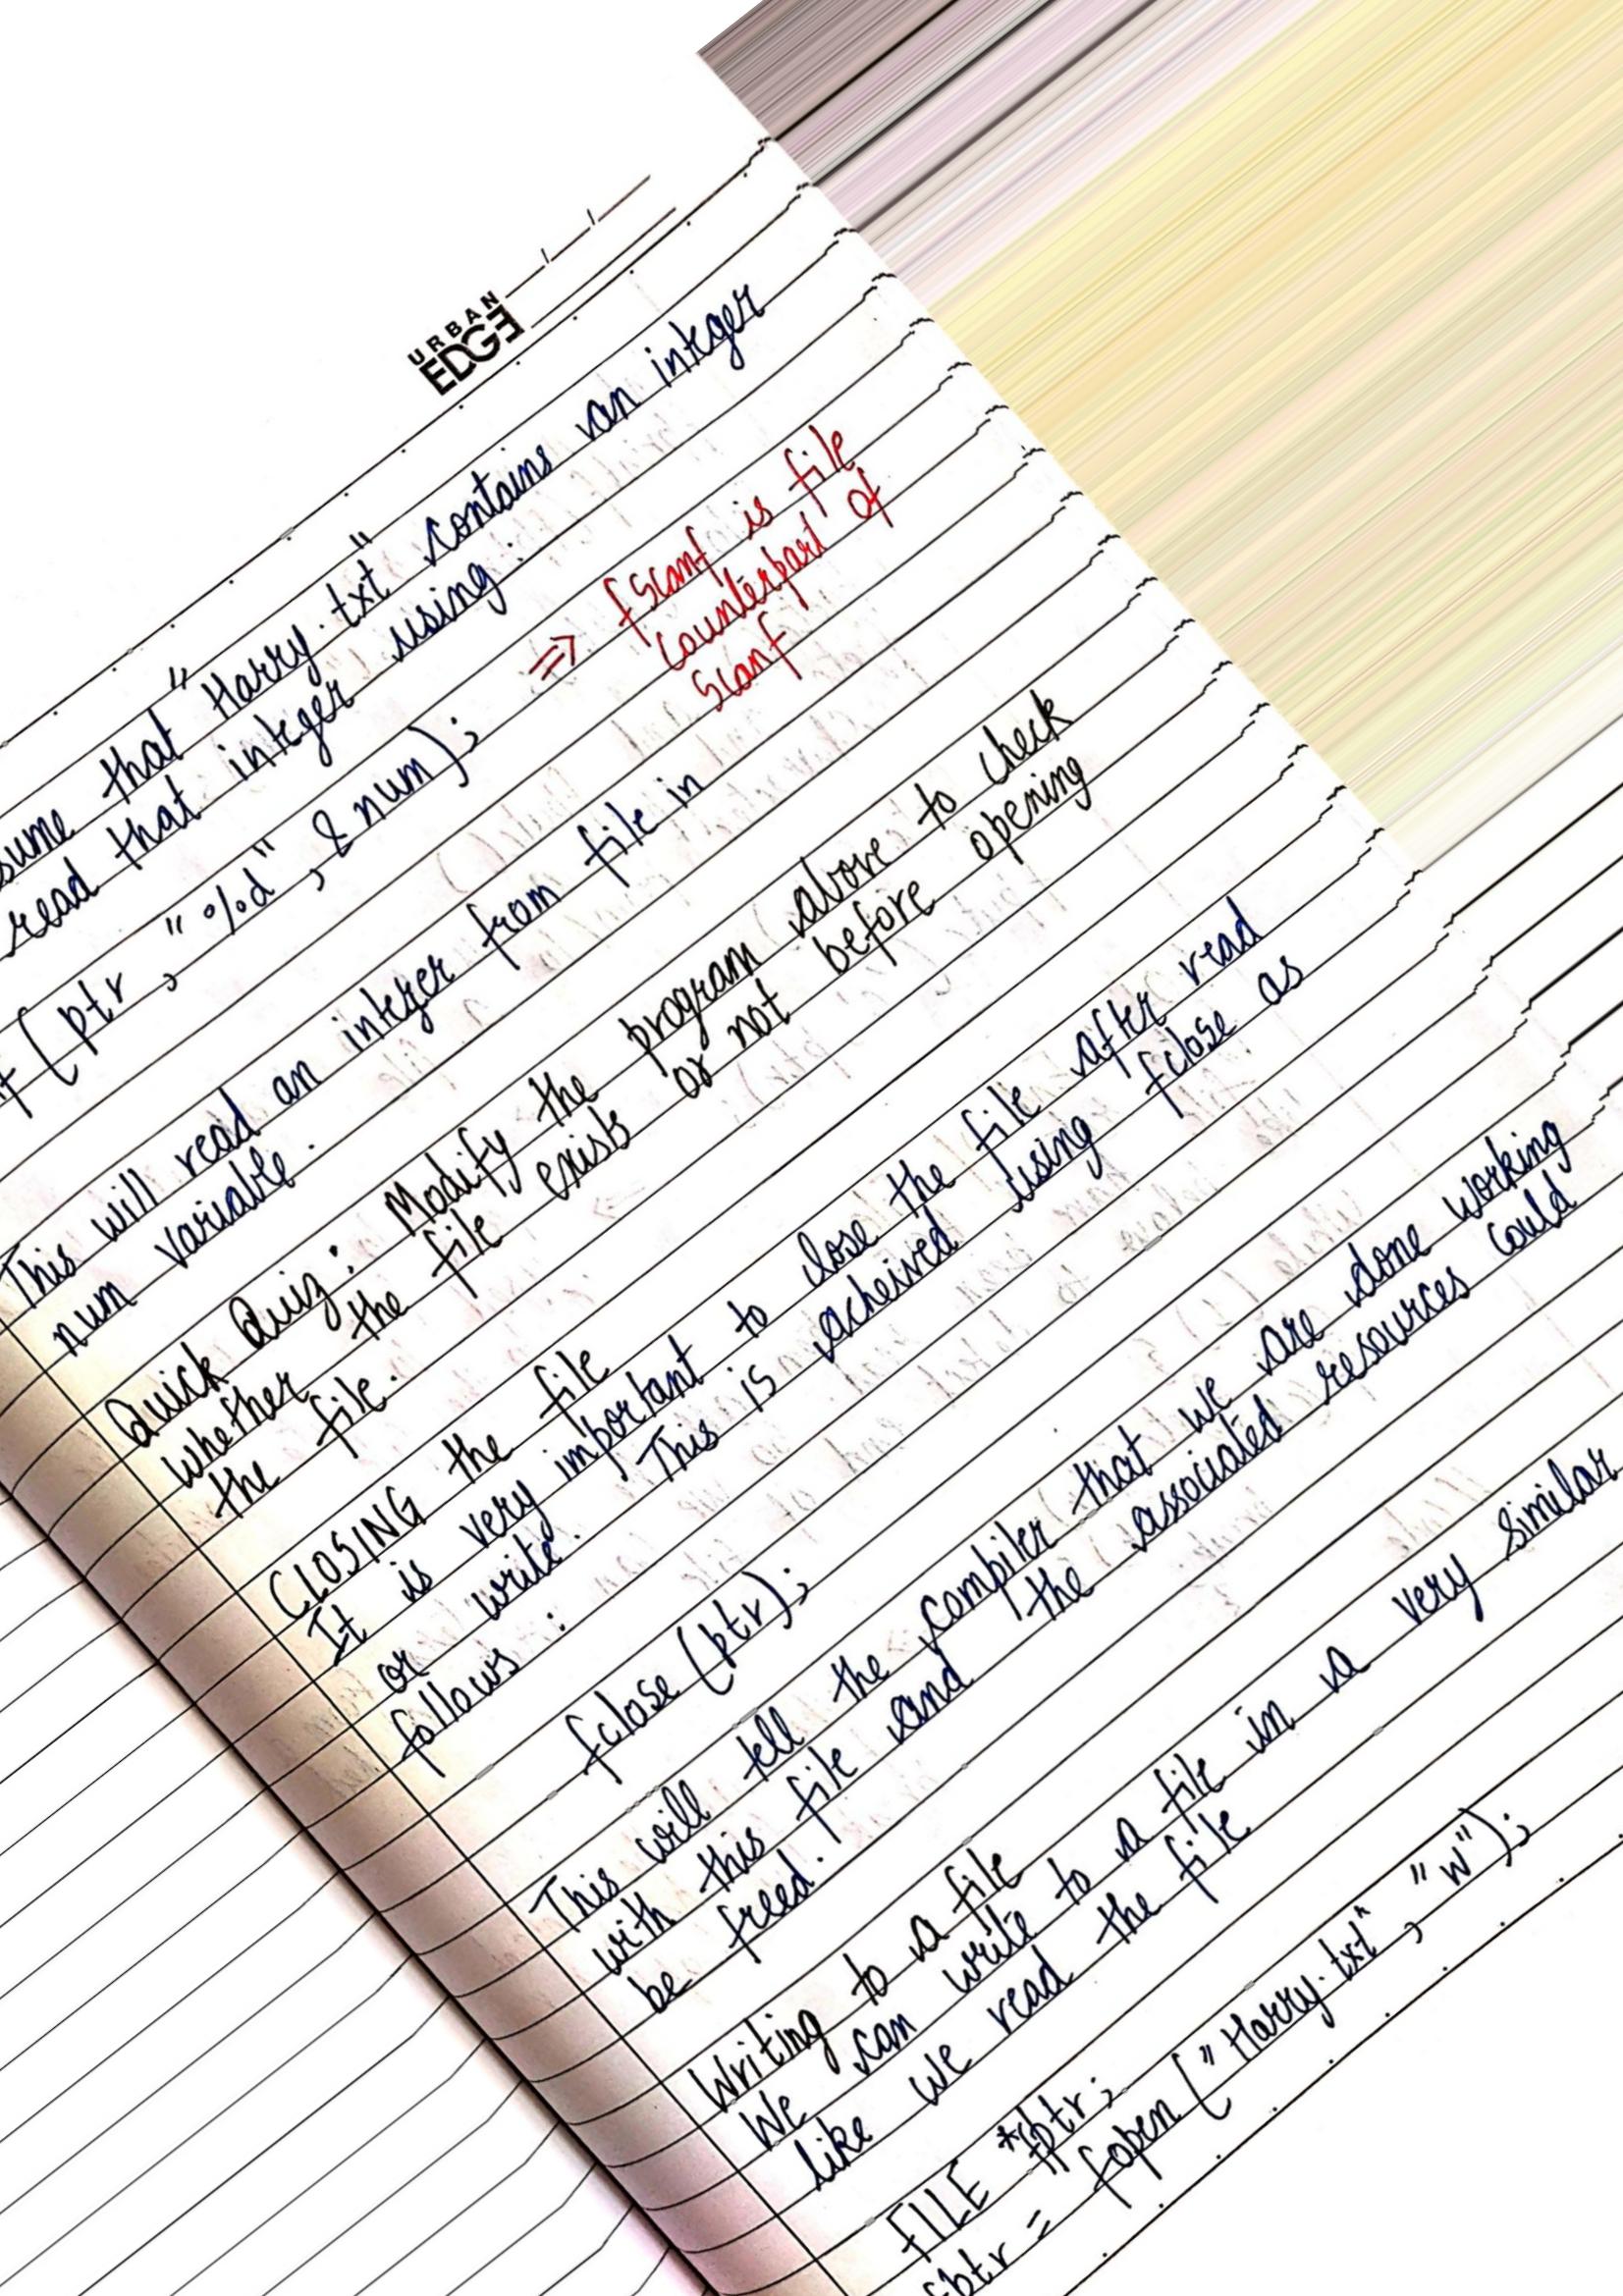 URBAN
EDGE
sume that "Harry.txt" contains an integer
read that integer using :
f ( ptr , "%d" , & num ) ; => fscanf is file
counterpart of
scanf
This will read an integer from file in
num variable.
Quick Quiz : Modify the program above to check
whether the file exists or not before opening
the file.
CLOSING the file
It is very important to close the file after read
or write. This is acheived using fclose as
follows :
fclose (ptr) ;
This will tell the compiler that we are done working
with this file and the associated resources could
be freed.
Writing to a file
We can write to a file in a very similar
like we read the file
FILE *fptr ;
fptr = fopen ("Harry.txt" , "w") ;